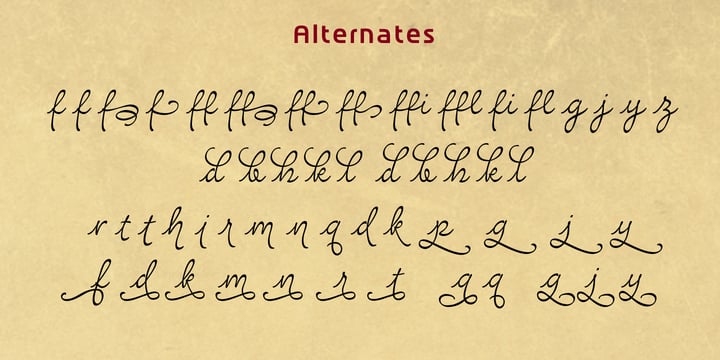 Alternates
f f f f ff ff ff ff ffi ffl fi fl g j y z
d b h k l d b h k l
r t t h i r m n q d k p g j y
f d k m n r t g q g j y